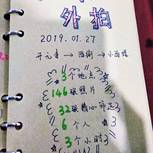 外拍
2019.01.27
开元寺→西街→小西埕
3个地点
146张照片
32张精心修
6个人
3个小时